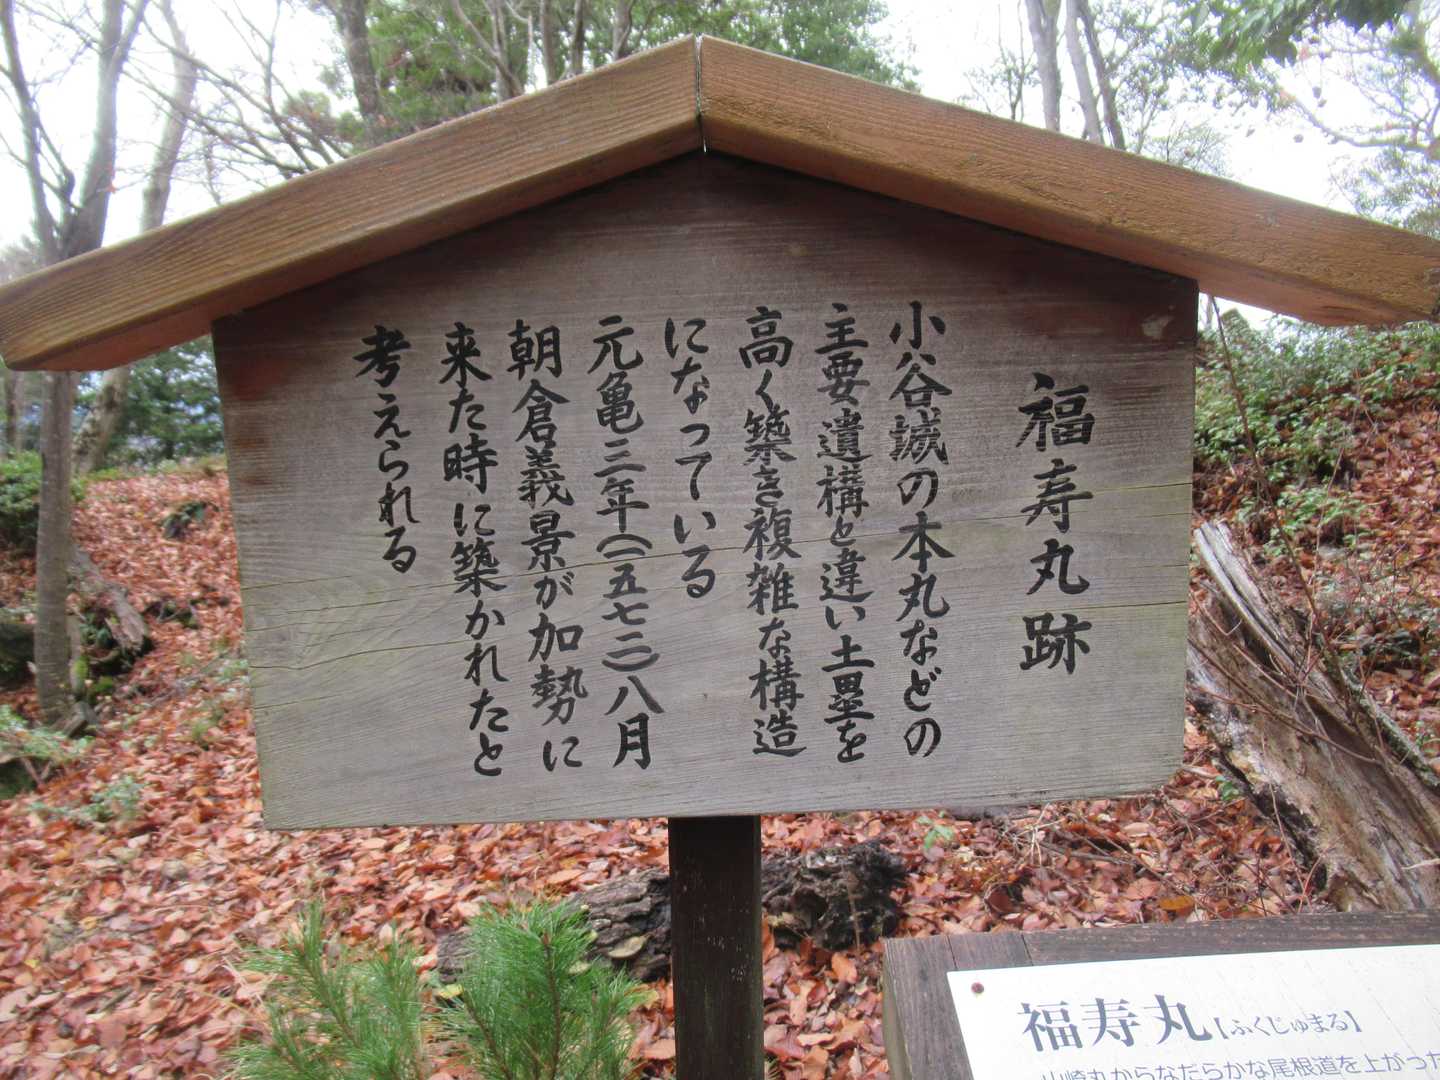 福寿丸跡
小谷城の本丸などの
主要遺構と違い土塁を
高く築き複雑な構造
になっている
元亀三年(一五七二)八月
朝倉義景が加勢に
来た時に築かれたと
考えられる
福寿丸【ふくじゅまる】
山崎丸からなだらかな尾根道を上がった